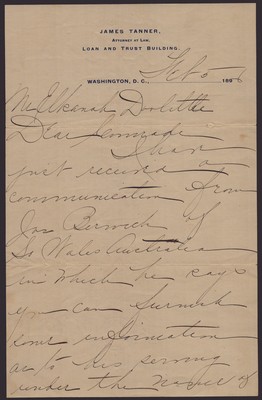 JAMES TANNER,
ATTORNEY AT LAW,
LOAN AND TRUST BUILDING.
WASHINGTON, D. C., Feb 5 188
Mr Elkanah Dolittle
Dear Comrade
I have
just received a
communication from
Jos Berwick of
So Wales Australia
in which he says
you can furnish
some information
as to his serving
under the name of